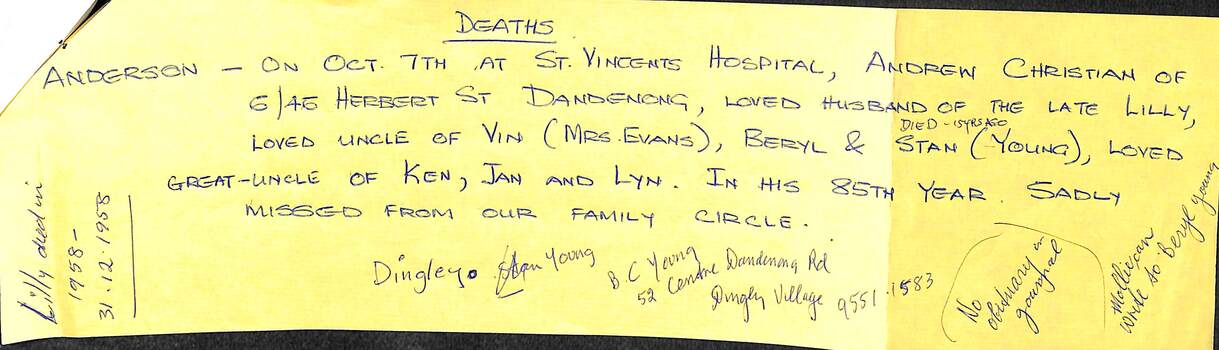 DEATHS
ANDERSON – ON OCT. 7TH AT ST. VINCENTS HOSPITAL, ANDREW CHRISTIAN OF
6/46 HERBERT ST DANDENONG, LOVED HUSBAND OF THE LATE LILLY,
DIED - 15YRS AGO
LOVED UNCLE OF VIN (MRS. EVANS), BERYL & STAN (YOUNG), LOVED
GREAT-UNCLE OF KEN, JAN AND LYN. IN HIS 85TH YEAR. SADLY
MISSED FROM OUR FAMILY CIRCLE.
Lilly died in
1958 –
31.12.1958
Dingley. Stan Young
B.C Young
52 Centre Dandenong Rd
Dingly Village 9551.1583
No
obituary in
journal
write to Beryl Young